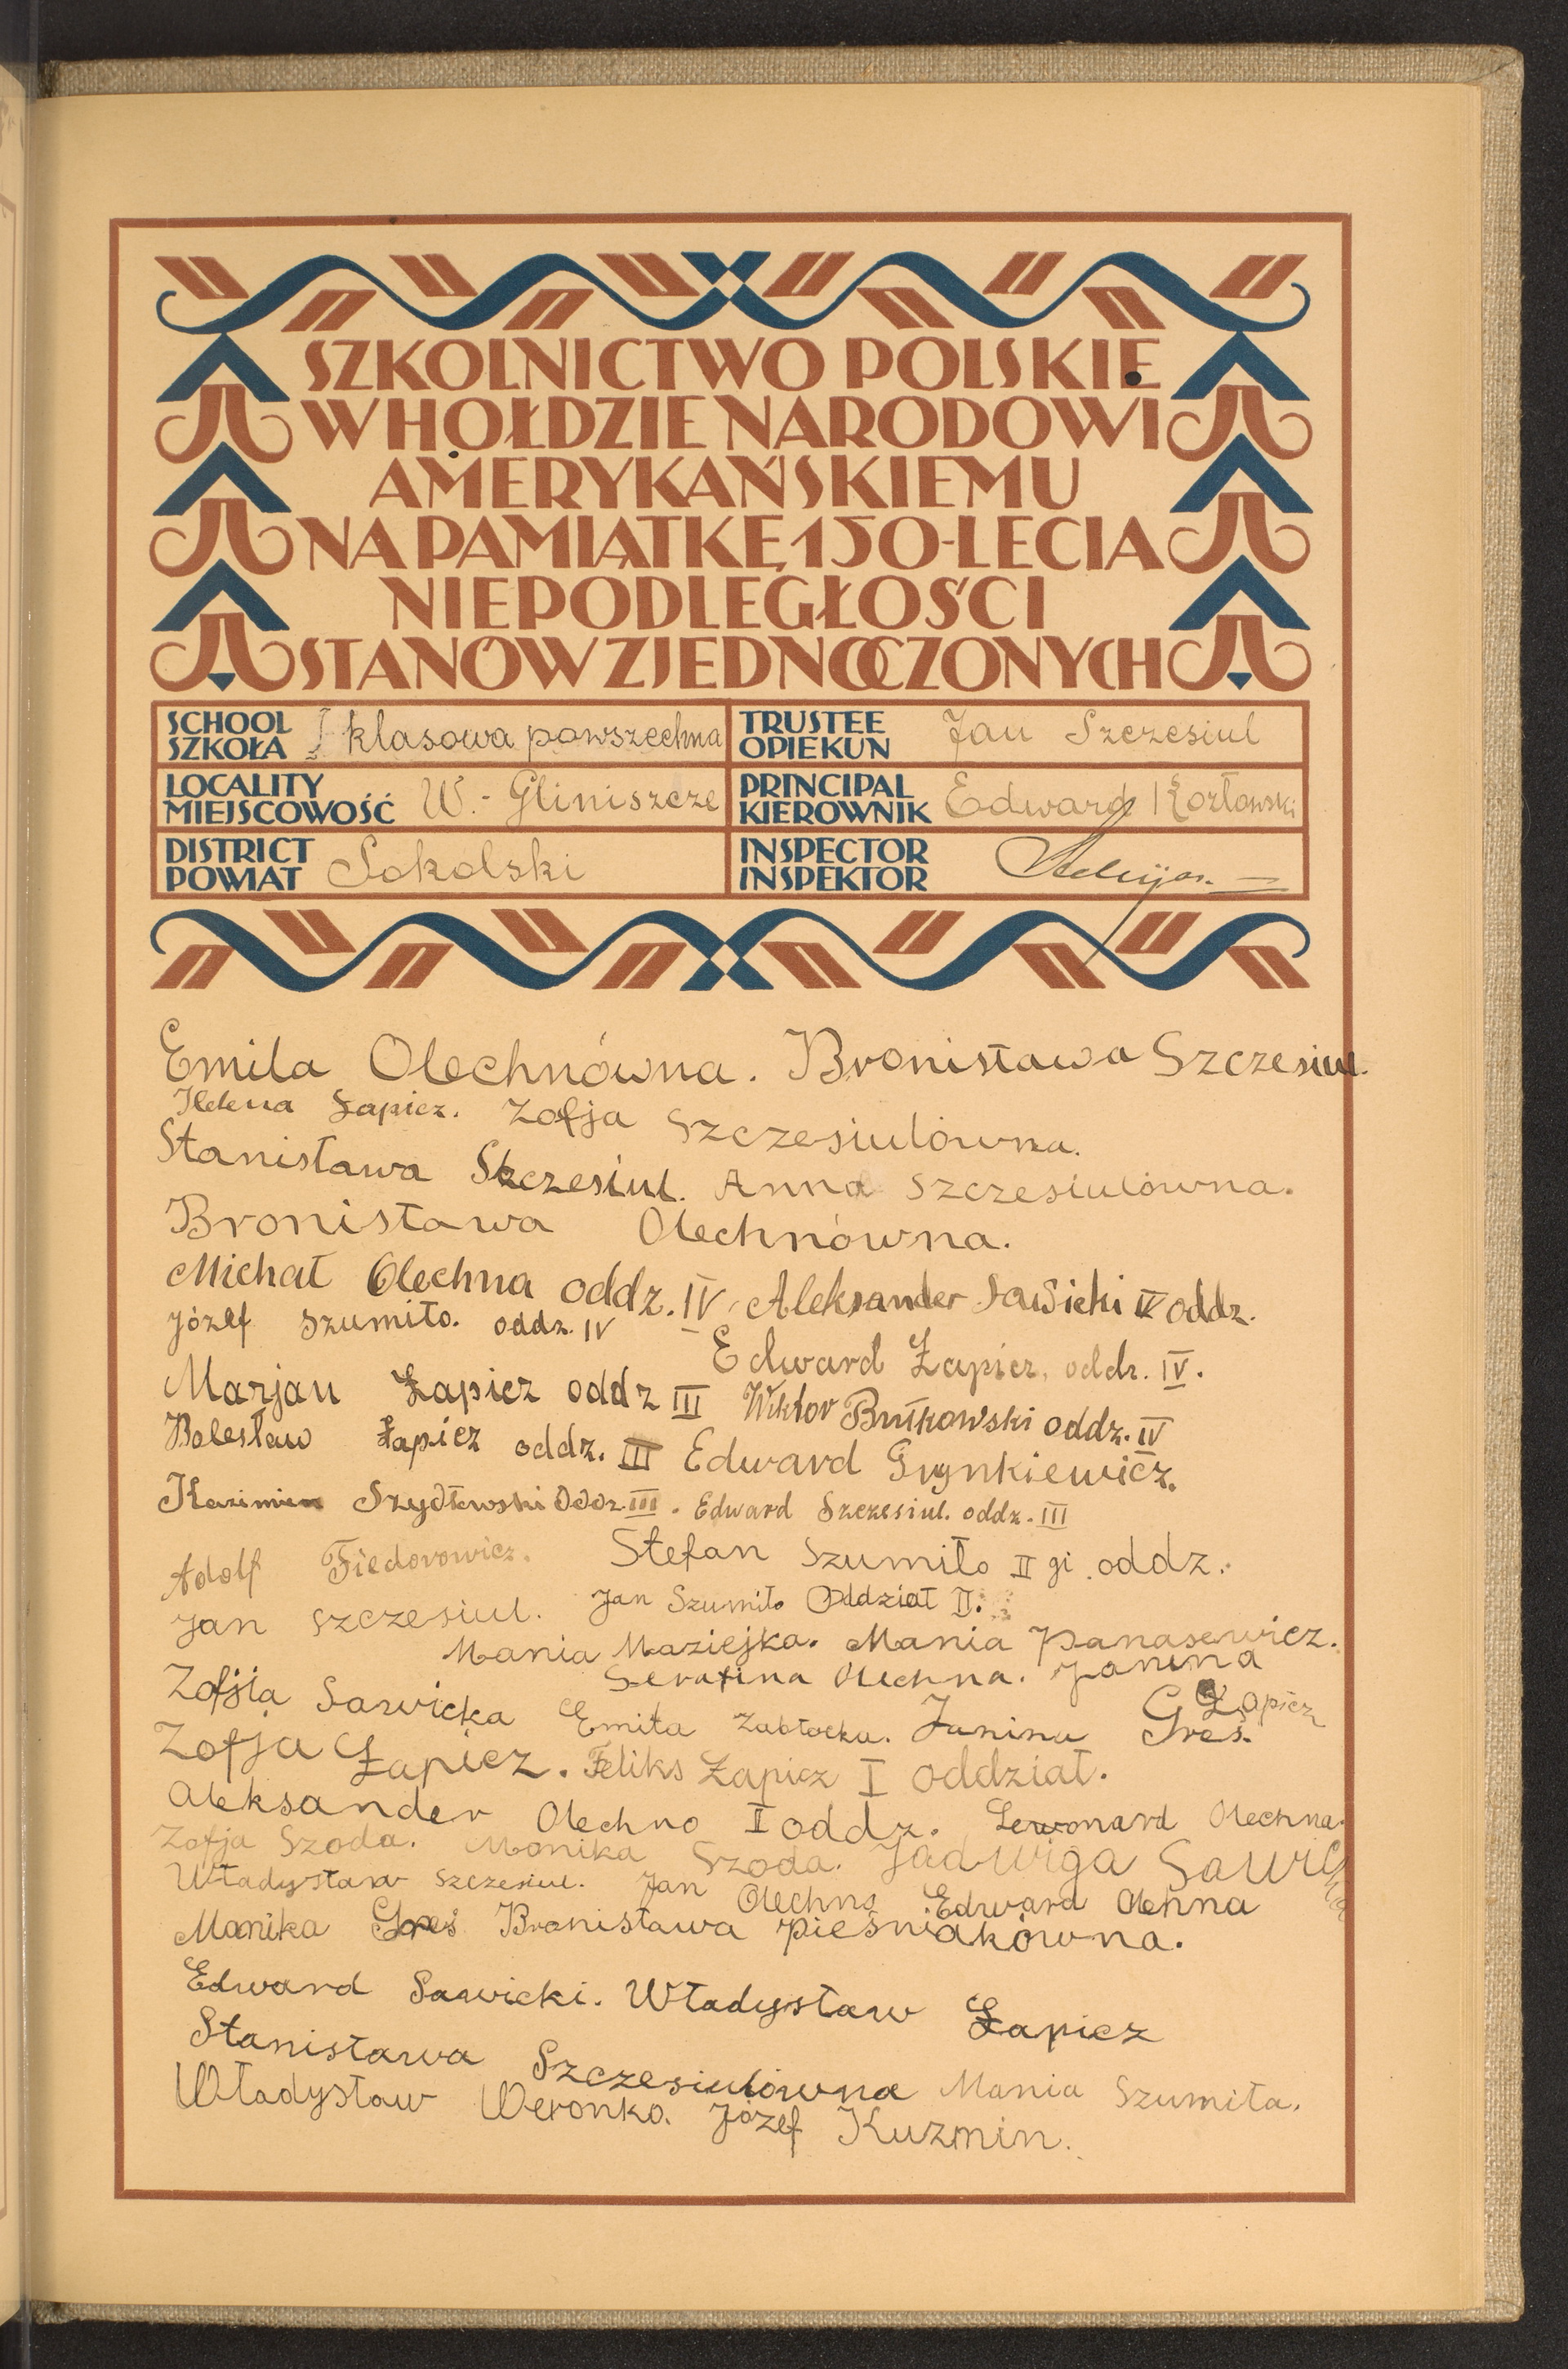 SZKOLNICTWO POLSKIE
W HOŁDZIE NARODOWI
AMERYKAŃSKIEMU
NA PAMIĄTKĘ 150-LECIA
NIEPODLEGŁOŚCI
STANÓW ZJEDNOCZONYCH
SCHOOL
SZKOŁA I klasowa powszechna
TRUSTEE
OPIEKUN Jan Szczesiul
LOCALITY
MIEJSCOWOŚĆ W.- Gliniszcze
PRINCIPAL
KIEROWNIK Edward Kozłowski
DISTRICT
POWIAT Sokolski
INSPECTOR
INSPEKTOR
Emila Olechnówna. Bronisława Szczesiul.
Helena Łapicz. Zofja Szczesiulówna.
Stanisława Szczesiul. Anna Szczesiulówna.
Bronisława Olechnówna.
Michał Olechna oddz. IV Aleksander Sawicki IV oddz.
Józef Szumiło. oddz. IV
Edward Łapicz, oddz. IV.
Marjan Łapicz oddz III Wiktor Butkowski oddz. IV
Bolesław Łapicz oddz. III Edward Grynkiewicz.
Kazimierz Szydłowski Oddz. III. Edward Szczesiul. oddz. III
Adolf Fiedorowicz. Stefan Szumiło II gi oddz.
Jan Szczesiul. Jan Szumiło Oddział II.
Mania Maziejka. Mania Panasewicz.
Serafina Olechna. Janina Łapicz
Zofjia Sawicka Emila Zabłocka. Janina Greś.
Zofja Łapicz. Feliks Łapicz I oddział.
Aleksander Olechno I oddz. Lewonard Olechna.
Zofja Szoda. Monika Szoda. Jadwiga Sawicka
Władysław Szczesiul. Jan Olechno Edward Olehna
Monika Greś Bronisława Pieśniakówna.
Edward Sawicki. Władysław Łapicz
Stanisława Szczesiulówna Mania Szumiła.
Władysław Weronko. Józef Kuzmin.